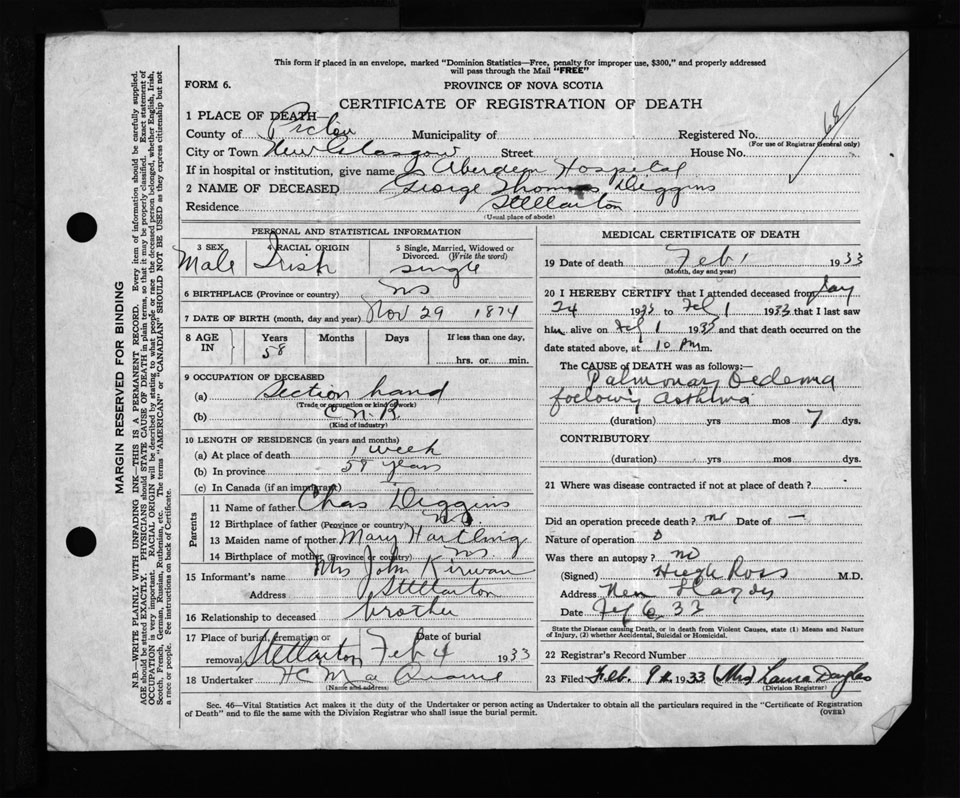 This form if placed in an envelope, marked "Dominion Statistics—Free, penalty for improper use, $300," and properly addressed
will pass through the Mail "FREE"
FORM 6.
PROVINCE OF NOVA SCOTIA
CERTIFICATE OF REGISTRATION OF DEATH
1 PLACE OF DEATH—
County of Pictou Municipality of Registered No. 68
(For use of Registrar General only)
City or Town New Glasgow Street House No.
If in hospital or institution, give name Aberdeen Hospital
2 NAME OF DECEASED George Thomas Diggins
Residence Stellarton
(Usual place of abode)
PERSONAL AND STATISTICAL INFORMATION
3 SEX 4 RACIAL ORIGIN 5 Single, Married, Widowed or
Divorced. (Write the word)
Male Irish single
6 BIRTHPLACE (Province or country) NS
7 DATE OF BIRTH (month, day and year) Nov 29 1874
8 AGE IN Years Months Days If less than one day,
58 hrs. or min.
9 OCCUPATION OF DECEASED
(a) Section hand
(Trade or occupation or kind of work)
(b) C.N.R.
(Kind of industry)
10 LENGTH OF RESIDENCE (in years and months)
(a) At place of death 1 week
(b) In province 58 years
(c) In Canada (if an immigrant)
Parents
11 Name of father Chas Diggins
12 Birthplace of father (Province or country) NS.
13 Maiden name of mother Mary Hartling
14 Birthplace of mother (Province or country) NS.
15 Informant's name Mrs John Kirwan
Address Stellarton
16 Relationship to deceased brother
17 Place of burial, cremation or removal Stellarton Date of burial Feb 4 1933
18 Undertaker H C
(Name and address)
MEDICAL CERTIFICATE OF DEATH
19 Date of death Feb 1 1933
(Month, day and year)
20 I HEREBY CERTIFY that I attended deceased from Jany
24 1933 to Feb 1 1933 that I last saw
him alive on Feb 1 1933 and that death occurred on
date stated above, at 10 PM m.
The CAUSE OF DEATH was as follows:—
Pulmonary Oedema
following Asthma
(duration) yrs mos 7 dys.
CONTRIBUTORY
(duration) yrs mos dys.
21 Where was disease contracted if not at place of death?
Did an operation precede death? no Date of —
Nature of operation
Was there an autopsy? no
(Signed) Hugh Ross M.D.
Address New Glasgow
Date Feb 6 33
State the Disease causing Death, or in death from Violent Causes, state (1) Means and Nature
of Injury, (2) whether Accidental, Suicidal or Homicidal.
22 Registrar's Record Number
23 Filed Feb. 9th 1933 (Mrs) Laura Douglas
(Division Registrar)
Sec. 46—Vital Statistics Act makes it the duty of the Undertaker or person acting as Undertaker to obtain all the particulars required in the "Certificate of Registration
of Death" and to file the same with the Division Registrar who shall issue the burial permit.
(OVER)
MARGIN RESERVED FOR BINDING
N.B.—WRITE PLAINLY WITH UNFADING INK—THIS IS A PERMANENT RECORD. Every item of information should be carefully supplied.
AGE should be stated EXACTLY. PHYSICIANS should STATE CAUSE OF DEATH in plain terms, so that it may be properly classified. Exact statement of
OCCUPATION is very important. RACIAL ORIGIN will be described by stating to what people or race the deceased person belonged, whether English, Irish,
Scotch, French, German, Russian, Ruthenian, etc. The terms "AMERICAN" or "CANADIAN" SHOULD NOT BE USED as they express citizenship but not
a race or people. See instructions on back of Certificate.